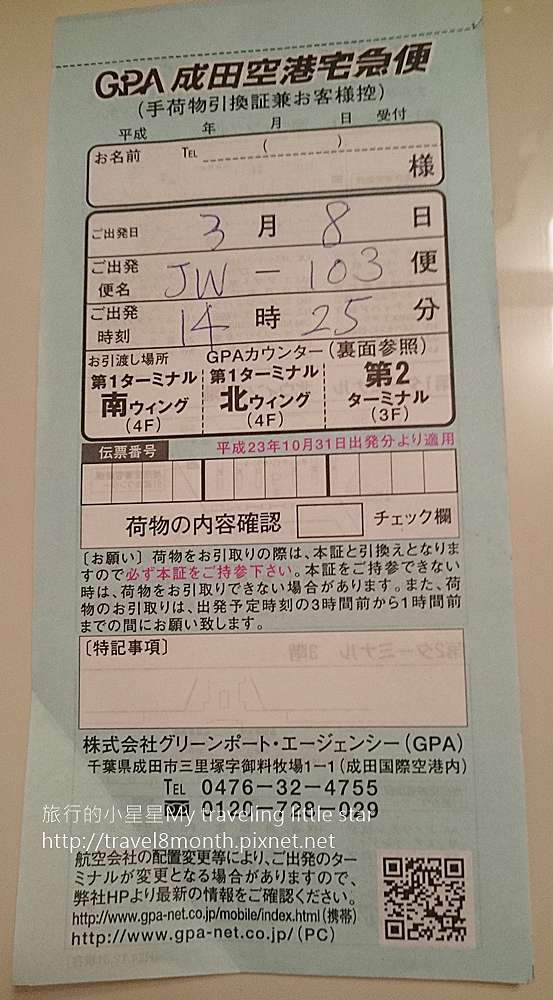 GPA 成田空港宅急便
(手荷物引換証兼お客様控)
平成 年 月 日 受付
お名前 TEL ( ) 様
ご出発日 3 月 8 日
ご出発便名 JW-103 便
ご出発時刻 14 時 25 分
お引渡し場所 GPAカウンター(裏面参照)
第1ターミナル 第1ターミナル 第2
南ウィング 北ウィング ターミナル
(4F) (4F) (3F)
伝票番号 平成23年10月31日出発分より適用
荷物の内容確認 チェック欄
〔お願い〕荷物をお引取りの際は、本証と引換えとなりま
すので必ず本証をご持参下さい。本証をご持参できない
時は、荷物をお引取りできない場合があります。また、荷
物のお引取りは、出発予定時刻の3時間前から1時間前
までの間にお願い致します。
〔特記事項〕
株式会社グリーンポート・エージェンシー(GPA)
千葉県成田市三里塚字御料牧場1-1(成田国際空港内)
TEL 0476-32-4755
0120-728-029
旅行的小星星My traveling little star
http://travel8month.pixnet.net
航空会社の配置変更等により、ご出発のター
ミナルが変更となる場合がありますので、
弊社HPより最新の情報をご確認ください。
http://www.gpa-net.co.jp/mobile/index.html(携帯)
http://www.gpa-net.co.jp/(PC)